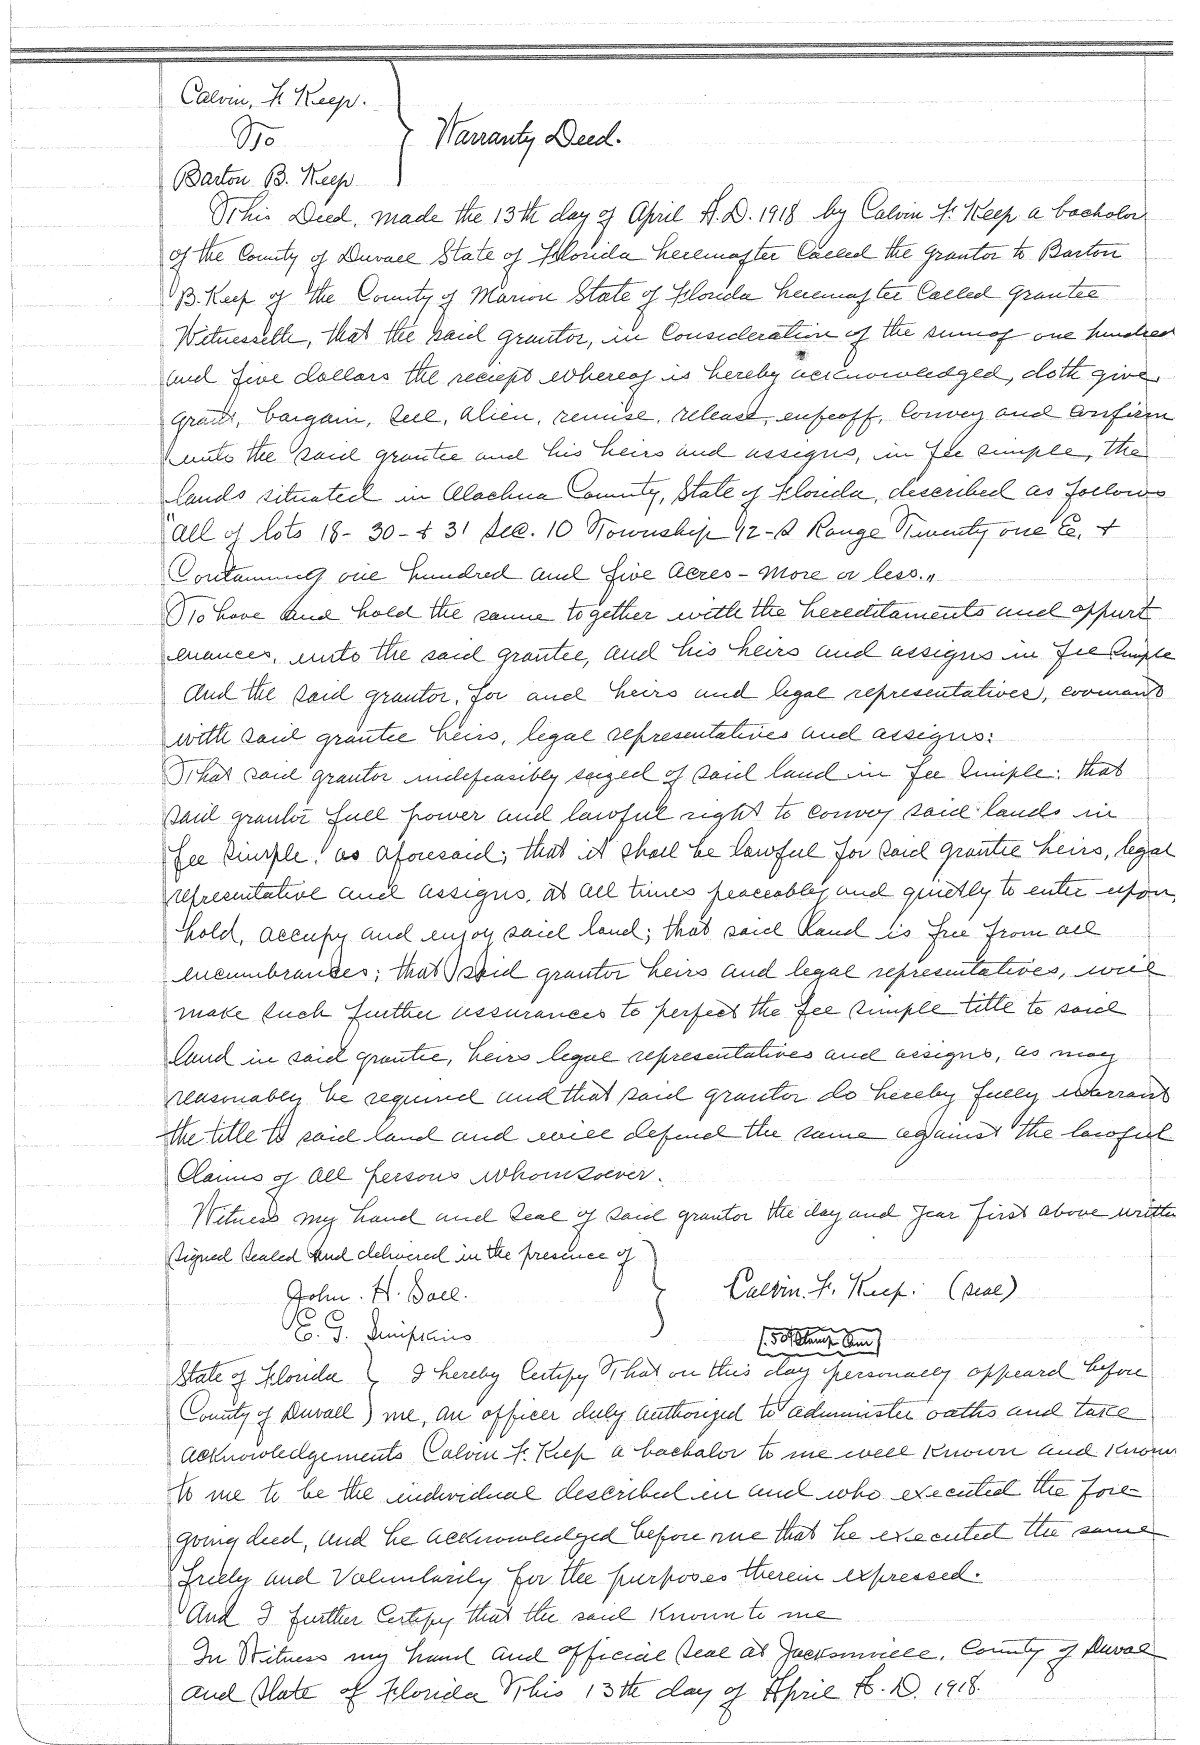 Calvin, F. Keep.
To
Warranty Deed.
Barton B. Keep
This Deed, made the 13th day of April A.D. 1918 by Calvin F. Keep a bachalor
of the County of Duvall State of Florida hereinafter Called the grantor to Barton
B. Keep of the County of Marion State of Florida hereinafter Called grantee
Witnesseth, that the said grantor, in Consideration of the sum of one hundred
and five dollars the reciept whereof is hereby acknowledged, doth give
grant, bargain, sell, alien, remise, release, enfeoff, Convey and Confirm
unto the said grantee and his heirs and assigns, in fee simple, the
lands situated in Alachua County, State of Florida, described as follows
"All of lots 18 - 30 - & 31 Sec. 10 Township 12 - S Range Twenty one E. &
Containing one hundred and five Acres - more or less."
To have and hold the same together with the hereditaments and appurt
enances, unto the said grantee, and his heirs and assigns in fee Simple
And the said grantor, for and heirs and legal representatives, covenants
with said grantee heirs, legal representatives and assigns:
That said grantor indefeasibly seized of said land in fee simple: that
said grantor full power and lawful right to convey said lands in
fee simple, as aforesaid; that it shall be lawful for said grantee heirs, legal
representative and assigns, at all times peaceably and quietly to enter upon,
hold, occupy and enjoy said land; that said land is free from all
encumbrances; that said grantor heirs and legal representatives, will
make such further assurances to perfect the fee simple title to said
land in said grantee, heirs legal representatives and assigns, as may
reasonably be required and that said grantor do hereby fully warrant
the title to said land and will defend the same against the lawful
Claims of all persons whomsoever.
Witness my hand and seal of said grantor the day and year first above written
Signed sealed and delivered in the presence of
John. H. Ball.
Calvin. F. Keep. (seal)
E. G. Simpkins
(.50¢ Stamp Can)
State of Florida } I hereby Certify That on this day personally appeard before
County of Duvall ) me, an officer duly authorized to administer oaths and take
acknowledgements Calvin F. Keep a bachalor to me well known and known
to me to be the individual described in and who executed the fore
going deed, and he acknowledged before me that he executed the same
freely and Voluntarily for the purposes therein expressed.
And I further Certify that the said known to me
In Witness my hand and official seal at Jacksonville, County of Duval
and State of Florida This 13th day of April A. D. 1918.